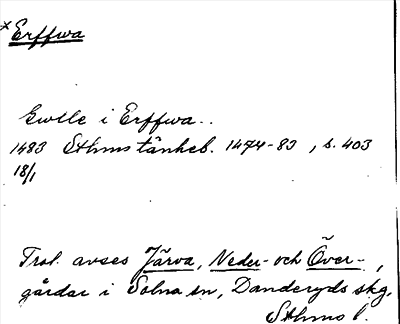 *Erffwa
Ewlle i Erffwa..
1483 Sthms tänkeb. 1474-83, s. 403
18/1
Trol. avses Järva, Neder- och Över-,
gårdar i Solna sn, Danderyds skg,
Sthms l.